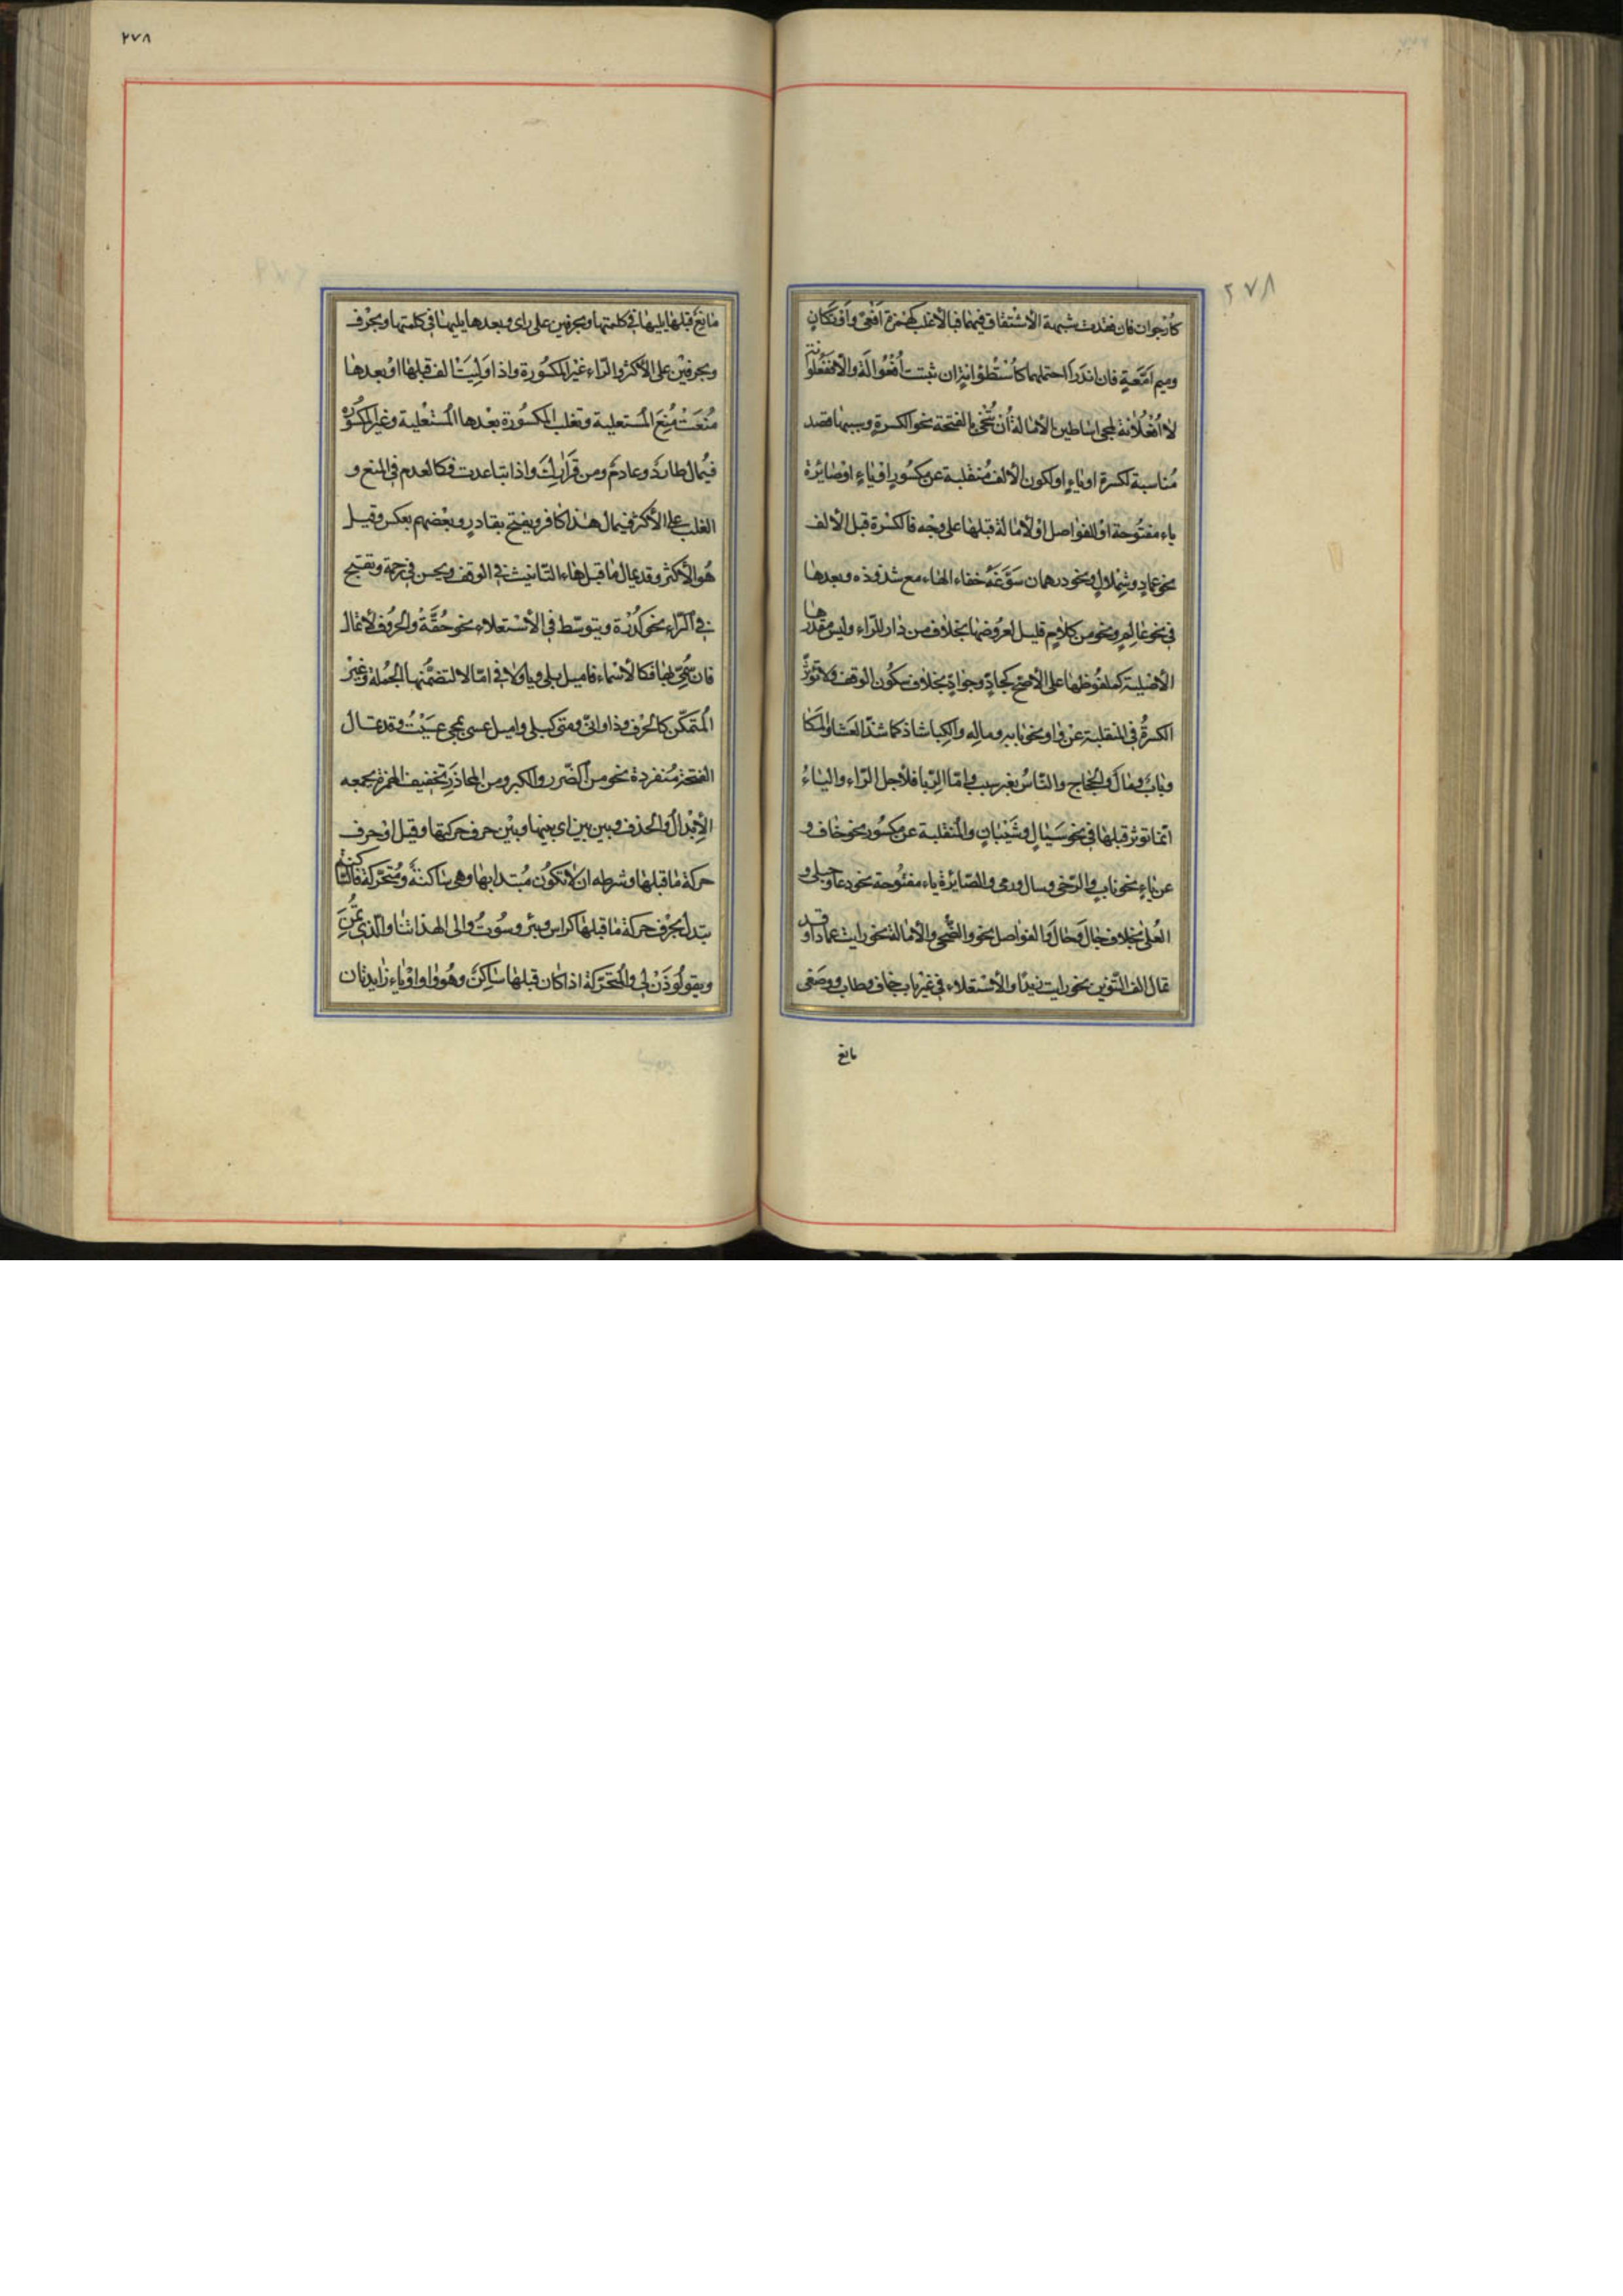 ٢٧٨
كأرجوان فان فقدت شبهة الاشتقاق فيهما فبالاغلب كهمزة افعى واوتكان
وميم امعة فان ندرا احتملهما كاسطوانة ان ثبتت افعوالة والا ففعلوانة
لا افعلانة لمجئ اساطين الامالة أن تنحى بالفتحة نحو الكسرة وسببها قصد
مناسبة لكسرة او ياء او لكون الألف منقلبة عن مكسور او ياء او صايرة
ياء مفتوحة او للفواصل او لامالة قبلها على وجه فالكسرة قبل الألف
نحو عماد وشملال ونحو درهمان سوغه خفاء الهاء مع شذوذه وبعدها
في نحو عالم ونحو من كلام قليل لعروضها بخلاف من دار للراء وليس مقدرها
الأصلية كملفوظها على الأصح كجاد وجواد بخلاف سكون الوقف ولا تؤثر
الكسرة في المنقلبة عن واو نحو بابه وماله والكبا شاذ كما شذ العشا والمكا
وباب ومال والحجاج والناس بغير سبب واما الربا فلاجل الراء والياء
انما تؤثر قبلها في نحو سيال وشيبان والمنقلبة عن مكسور نحو خاف و
عن ياء نحو ناب والرحى وسال ورمى والصايرة ياء مفتوحة نحو دعا وحبلى و
العلى بخلاف جال وحال والفواصل نحو والضحى والامالة نحو رايت عمادا وقد
تمال الف التنوين نحو رايت زيدا والاستعلاء في غير باب خاف وطاب وصغى
مانع
٢٧٨
مانع قبلها يليها في كلمتها وبحرفين على راى وبعدها يليها في كلمتها وبحرف
وبحرفين على الأكثر والراء غير المكسورة واذا وليت الف قبلها او بعدها
منعت منع المستعلية وتغلب المكسورة بعدها المستعلية وغير المكسورة
فيمال طارد وغارم ومن قرارك واذا تباعدت فكالعدم في المنع و
الغلب على الأكثر فيمال هذا كافر ويفتح بقادر وبعضهم بعكس وقيل
هو الأكثر وقد يمال ما قبل هاء التانيث في الوقف ويحسن في رحمة وتقبح
في الراء نحو كدرة ويتوسط في الاستعلاء نحو حقة والحروف لا تمال
فان سمى بها فكالأسماء فاميل بلى ويا ولا في امالا لتضمنها الجملة وغير
المتمكن كالحرف وذا وانى ومتى كبلى واميل عسى لمجئ عسيت وقد تمال
الفتحة منفردة نحو من الضرر والكبر ومن المحاذر تخفيف الهمزة يجمعه
الابدال والحذف وبين بين اى بينها وبين حرف حركتها وقيل او حرف
حركة ما قبلها وشرطه ان لا تكون مبتدا بها وهى ساكنة ومتحركة فالساكنة
تبدل بحرف حركة ما قبلها كراس وبئر وسوت والى الهداتنا والذيتمن
ويقولوذن لي والمتحركة اذا كان قبلها ساكن وهو واو او ياء زايدتان